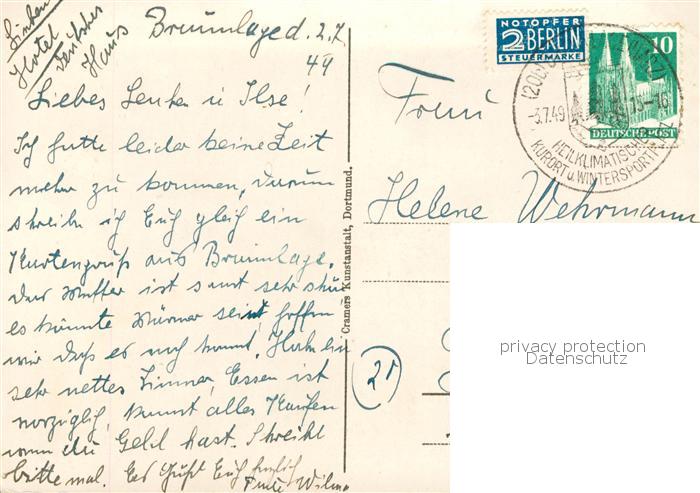 Hotel
Deutsches
Haus
Braunlage d. 2.7
49
Liebes Lenken u Ilse!
Ich hatte leider keine Zeit
mehr zu kommen, darum
schreibe ich Euch gleich ein
Kartengruß aus Braunlage.
Das Wetter ist sonst sehr schön
es könnte wärmer sein, hoffen
wir daß es noch kommt. Haben ein
sehr nettes Zimmer, Essen ist
vorzüglich, kannst alles kaufen
wenn du Geld hast. Schreibt
bitte mal. Es grüßt Euch herzlich
Tante Wilma
Cramers Kunstanstalt, Dortmund.
NOTOPFER
2 BERLIN
STEUERMARKE
10
DEUTSCHE POST
-3.7.49
HEILKLIMATISCHER
KURORT u. WINTERSPORTPLATZ
Frau
Helene Wehrmann
privacy protection
Datenschutz